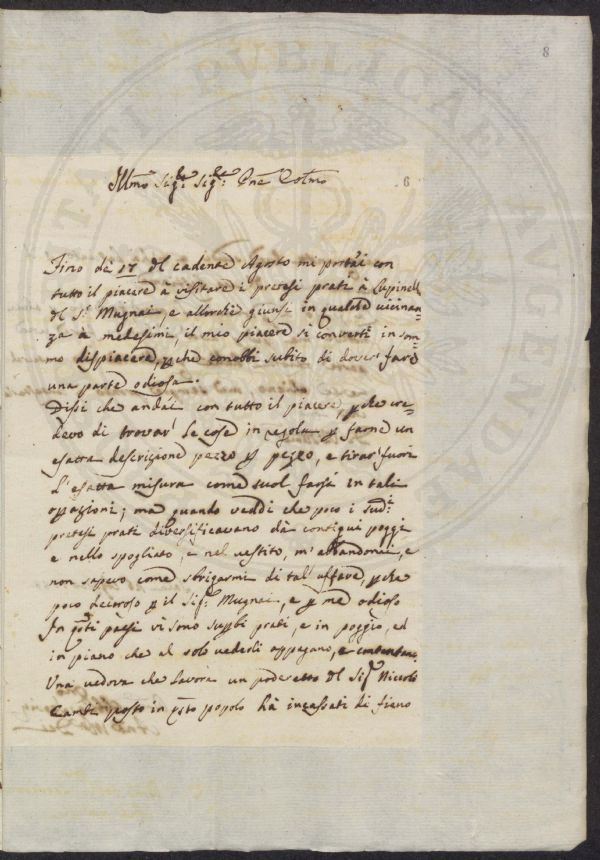 8
Illmo Sigre Sigre Pne Colmo
6
Fino de 17 del cadente Agosto mi portai con
tutto il piacere à visitare i pretesi prati à Lupinell
del Sr Mugnai, e allorchè giunsi in qualche vicinan=
za à medesimi, il mio piacere si convertì in som=
mo dispiacere, pche conobbi subito di dover fare
una parte odiosa.
Dissi che andai con tutto il piacere, pche cre=
devo di trovar le cose in regola p farne un
esatta descrizione pezzo p pezzo, e tirar fuori
l'esatta misura come suol farsi in tali
opazioni; ma quando veddi che poco i sudi
pretesi prati diversificavano dà contigui poggi
e nello spogliato, e nel vestito, m'abbandonai, e
non sapevo come sbrigarmi di tal affare, pche
poco decoroso p il Sigr Mugnai, e p me odioso
In qsti paesi vi sono suppbi prati, e in poggio, ed
in piano che al solo vederli appagano, e contentan.
Una vedova che lavora un poderetto del Sigr Niccolò
Cambi posto in qsto popolo hà incassati di fieno
PVBLICAE